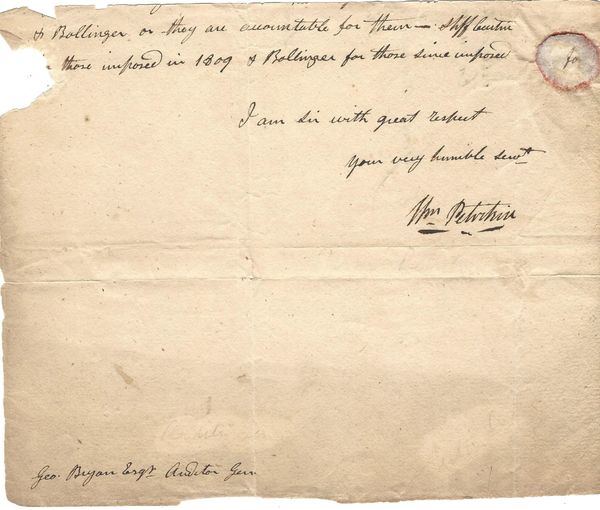 & Bollinger or they are accountable for them — Shff
those imposed in 1809 & Bollinger for those since imposed
fo
I am sir with great respect
your very humble servt
Wm
Geo. Bryan Esqr Auditor Gen